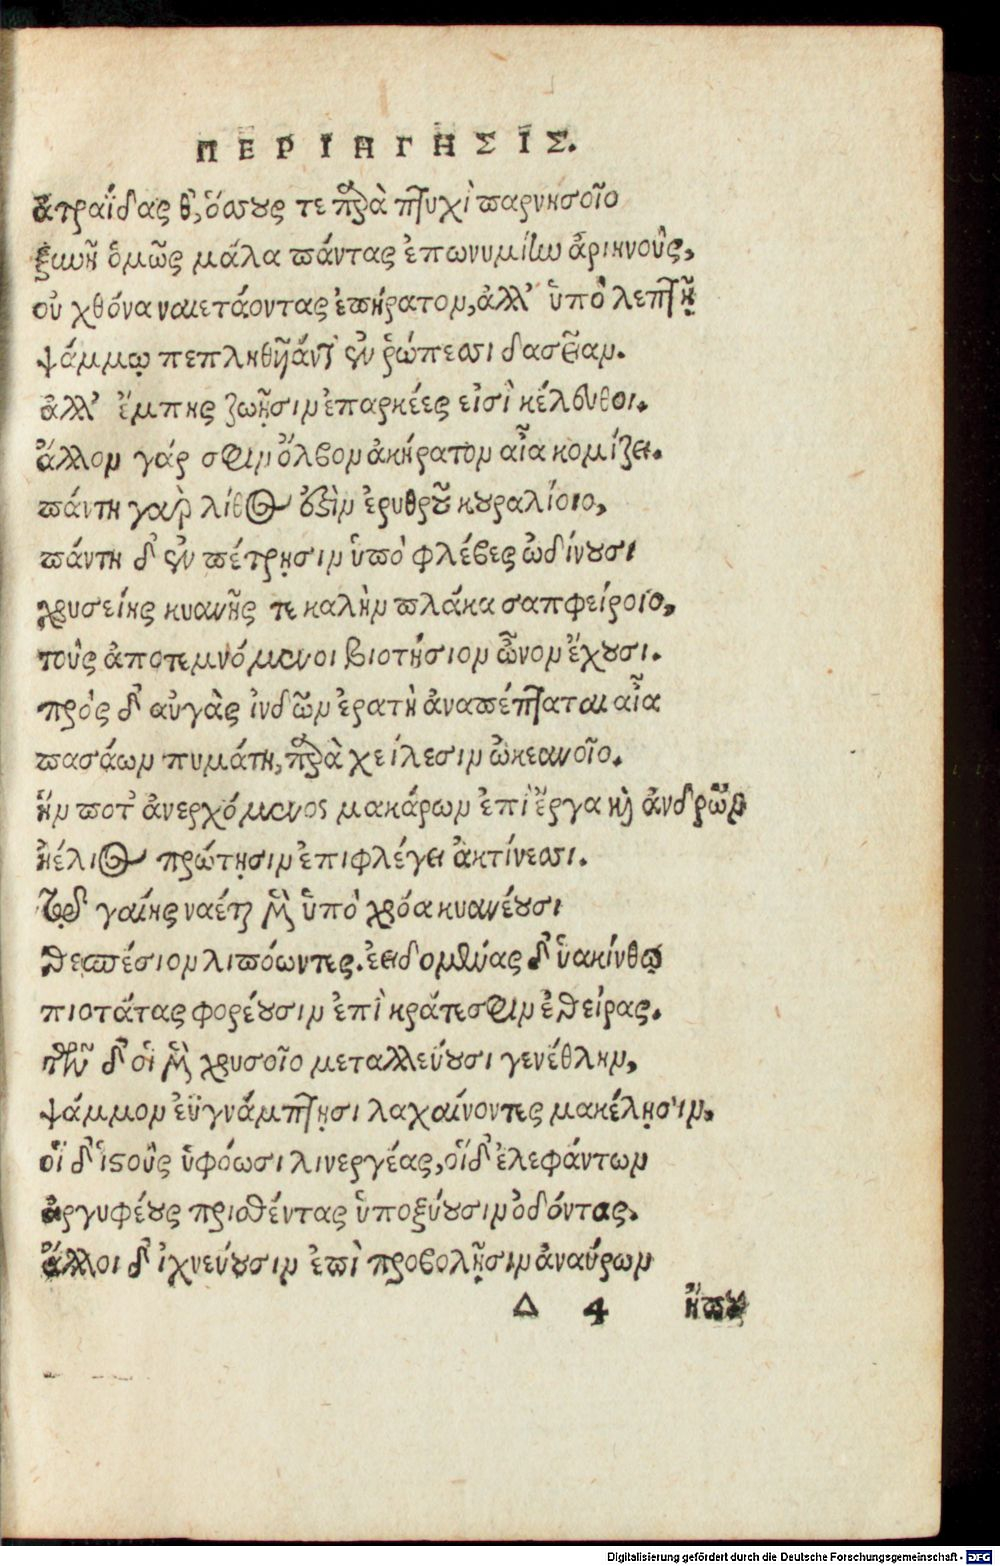 ΠΕΡΙΗΓΗΣΙΣ.
ἀτραΐδας θ', ὅσους τε παρὰ πτυχὶ παρνησοῖο
ξυνῇ ὁμῶς μάλα πάντας ἐπωνυμίην ἀριηνοὺς,
οὐ χθόνα ναιετάοντας ἐπήρατον, ἀλλ' ὑπὸ λεπτῇ
ψάμμῳ πεπληθῆαν ἰδ' ἐν ῥώπεσσι δασεῖαν.
ἀλλ' ἔμπης ζωῇσιν ἐπαρκέες εἰσὶ κέλευθοι.
ἄλλον γάρ σφιν ὄλβον ἀκήρατον αἶα κομίζει.
πάντη γαὰρ λίθος ἐστὶν ἐρυθροῦ κουραλίοιο,
πάντη δ' ἐν πέτρῃσιν ὑπὸ φλέβες ὠδίνουσι
χρυσείης κυανῆς τε καλὴν πλάκα σαπφείροιο,
τοὺς ἀποτεμνόμενοι βιοτήσιον ὦνον ἔχουσι.
πρὸς δ' αὐγὰς ἰνδῶν ἐρατὴ ἀναπέπταται αἶα
πασάων πυμάτη, παρὰ χείλεσιν ὠκεανοῖο.
ἥν ποτ' ἀνερχόμενος μακάρων ἐπὶ ἔργα καὶ ἀνδρῶν
ἠέλιος πρώτῃσιν ἐπιφλέγει ἀκτίνεσσι.
τῷ δ γαίης ναέται μὲν ὑπὸ χρόα κυανέουσι
θεσπέσιον λιπόωντες. ἐειδομένας δ' ὑακίνθῳ
πιοτάτας φορέουσιν ἐπὶ κράτεσφιν ἐθείρας.
τῶν δ' οἱ μὲν χρυσοῖο μεταλλεύουσι γενέθλην,
ψάμμον ἐϋγνάμπτῃσι λαχαίνοντες μακέλῃσιν,
οἳ δ' ἱστοὺς ὑφόωσι λινεργέας, οἵ δ' ἐλεφάντων
ἀργυφέους πρισθέντας ὑποξύουσιν ὀδόντας.
ἄλλοι δ' ἰχνεύουσιν ἐπὶ προβολῇσιν ἀναύρων
Δ 4 ἤπου
Digitalisierung gefördert durch die Deutsche Forschungsgemeinschaft - DFG